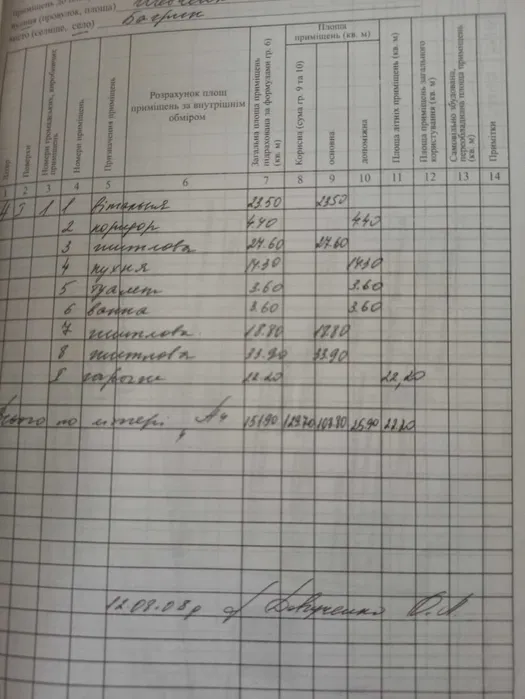 приміщень до
вулиця (провулок, площа)
місто (селище, село)
Поверхи
Номери приміщень
Призначення приміщень
Розрахунок площ приміщень за внутрішнім обміром
Загальна площа приміщень підрахована за формулами гр. 6) (кв. м)
Площа приміщень (кв. м)
Корисна (сума гр. 9 та 10)
основна
допоміжна
Площа літніх приміщень (кв. м)
Площа приміщень загального користування (кв. м)
Самовільно збудована, переобладнана площа приміщень (кв. м)
Примітки
1 2 3 4 5 6 7 8 9 10 11 12 13 14
1 1 вітальня 23.50 23.50
2 коридор 4.40 4.40
3 житлова 27.60 27.60
4 кухня 14.30 14.30
5 туалет 3.60 3.60
6 ванна 3.60 3.60
7 житлова 18.80
8 житлова 33.90 33.90
22.20 22,20
по літері 151.90 129.70 25.90 22.20
12.08.08р О. Л.